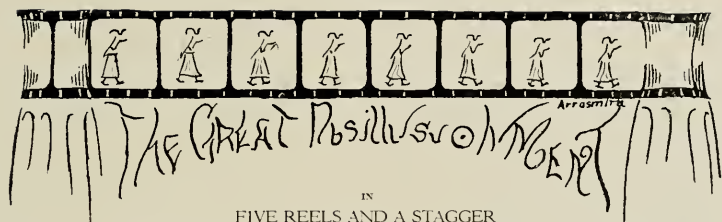 THE GREAT DisillusiOnMENT
IN
FIVE REELS AND A STAGGER